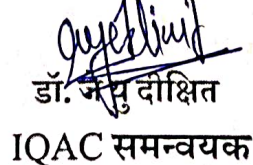 डॉ. जयु दीक्षित
IQAC समन्वयक